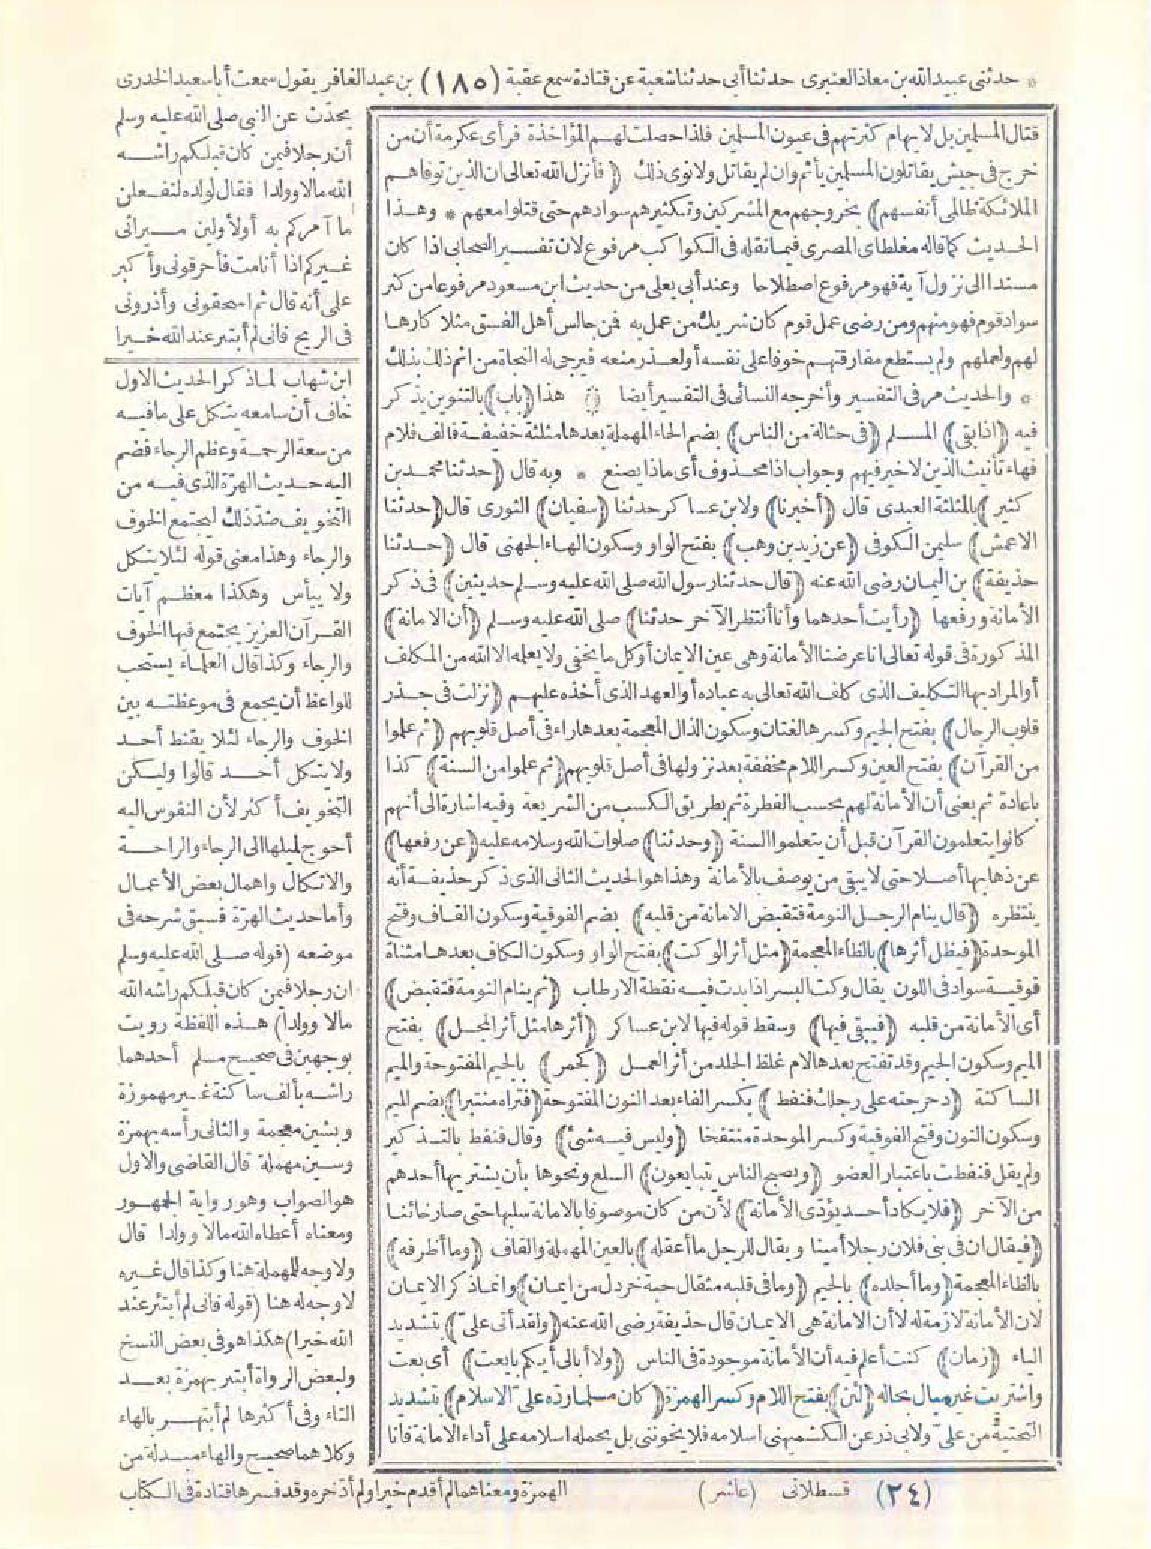 * حدثنى عبيد الله بن معاذ العنبرى حدثنا أبى حدثنا شعبة عن قتادة سمع عقبة (١٨٥) بن عبد الغافر يقول سمعت أبا سعيد الخدرى
فقال المسلمين بل لايهام كثرتهم فى عيون المسلمين فلذا حصلت لهم المؤاخذة فرأى عكرمة أن من
خرج فى جيش يقاتلون المسلمين يأثم وان لم يقاتل ولا نوى ذلك (فأنزل الله تعالى ان الذين توفاهم
الملائكة ظالمى أنفسهم) بخروجهم مع المشركين وتكثيرهم سوادهم حتى قتلوا معهم * وهذا
الحديث كما قاله مغلطاى المصرى فيما نقله فى الكواكب مرفوع لان تفسير الصحابى اذا كان
مسندا الى نزول آية فهو مرفوع اصطلاحا وعند أبى يعلى من حديث ابن مسعود مرفوعا من كثر
سواد قوم فهو منهم ومن رضى عمل قوم كان شريك من عمل به فمن جالس أهل الفسق مثلا كارها
لهم ولعملهم ولم يستطع مفارقتهم خوفا على نفسه أو لعذر منعه فيرجى له النجاة من اثم ذلك بذلك
* والحديث مر فى التفسير وأخرجه النسائى فى التفسير أيضا هذا (باب) بالتنوين يذكر
فيه (اذا بقى) المسلم (فى حثالة من الناس) بضم الحاء المهملة بعدها مثلثة خفيفة فألف فلام
فهاء تأنيث الذين لا خير فيهم وجواب اذا محذوف أى ماذا يصنع * وبه قال (حدثنا محمد بن
كثير) بالمثلثة العبدى قال (أخبرنا) ولابن عساكر حدثنا (سفيان) الثورى قال (حدثنا
الاعمش) سليمن الكوفى (عن زيد بن وهب) بفتح الواو وسكون الهاء الجهنى قال (حدثنا
حذيفة) بن اليمان رضى الله عنه (قال حدثنا رسول الله صلى الله عليه وسلم حديثين) فى ذكر
الأمانة ورفعها (رأيت أحدهما وأنا أنتظر الآخر حدثنا) صلى الله عليه وسلم (أن الامانة)
المذكورة فى قوله تعالى انا عرضنا الأمانة وهى عين الايمان أو كل ما يخفى ولا يعلمه الا الله من المكلف
أو المراد بها التكليف الذى كلف الله تعالى به عباده أو العهد الذى أخذه عليهم (نزلت فى جذر
قلوب الرجال) بفتح الجيم وكسرها لغتان وسكون الذال المعجمة بعدها راء فى أصل قلوبهم (ثم علموا
من القرآن) بفتح العين وكسر اللام مخففة بعد نزولها فى أصل قلوبهم (ثم علموا من السنة) كذا
باعادة ثم يعنى أن الأمانة لهم بحسب الفطرة ثم بطريق الكسب من الشريعة وفيه اشارة الى أنهم
كانوا يتعلمون القرآن قبل أن يتعلموا السنة (وحدثنا) صلوات الله وسلامه عليه (عن رفعها)
عن ذهابها أصلا حتى لا يبقى من يوصف بالأمانة وهذا هو الحديث الثانى الذى ذكر حذيفة أنه
ينتظره (قال ينام الرجل النومة فتقبض الامانة من قلبه) بضم الفوقية وسكون القاف وفتح
الموحدة (فيظل أثرها) بالظاء المعجمة (مثل أثر الوكت) بفتح الواو وسكون الكاف بعدها مثناة
فوقية سواد فى اللون يقال وكت البسر اذا بدت فيه نقطة الارطاب (ثم ينام النومة فتقبض)
أى الأمانة من قلبه (فيبقى فيها) وسقط قوله فيها لابن عساكر (أثرها مثل أثر المجل) بفتح
الميم وسكون الجيم وقد تفتح بعدها لام غلظ الجلد من أثر العمل (كجمر) بالجيم المفتوحة والميم
الساكنة (دحرجته على رجلك فنفط) بكسر الفاء بعد النون المفتوحة (فتراه منتبرا) بضم الميم
وسكون النون وفتح الفوقية وكسر الموحدة منتفخا (وليس فيه شئ) وقال فنفط بالتذكير
ولم يقل فنفطت باعتبار العضو (ويصبح الناس يتبايعون) السلع ونحوها بأن يشتريها أحدهم
من الآخر (فلا يكاد أحد يؤدى الأمانة) لأن من كان موصوفا بالامانة سلبها حتى صار خائنا
(فيقال ان فى بنى فلان رجلا أمينا ويقال للرجل ما أعقله) بالعين المهملة والقاف (وما أظرفه)
بالظاء المعجمة (وما أجلده) بالجيم (وما فى قلبه مثقال حبة خردل من ايمان) وانما ذكر الايمان
لان الأمانة لازمة له لا أن الامانة هى الايمان قال حذيفة رضى الله عنه (ولقد أتى علىّ) بتشديد
الياء (زمان) كنت أعلم فيه أن الأمانة موجودة فى الناس (ولا أبالى أيكم بايعت) أى بعت
واشتريت غير مبال بحاله (لئن) بفتح اللام وكسر الهمزة (كان مسلما رده علىّ الاسلام) بتشديد
التحتية من علىّ ولابى ذر عن الكشميهنى اسلامه فلا يخوننى بل يحمله اسلامه على أداء الامانة فأنا
يحدّث عن النبى صلى الله عليه وسلم
أن رجلا فيمن كان قبلكم راشه
الله مالا وولدا فقال لولده لتفعلن
ما آمركم به أو لأولين ميراثى
غيركم اذا أنا مت فأحرقونى وأكبر
على أنه قال ثم اسحقونى وأذرونى
فى الريح فانى لم أبتئر عند الله خيرا
ابن شهاب لما ذكر الحديث الاول
خاف أن سامعه يتكل على ما فيه
من سعة الرحمة وعظم الرجاء فضم
اليه حديث الهرّة الذى فيه من
التخويف ضدّ ذلك ليجتمع الخوف
والرجاء وهذا معنى قوله لئلا يتكل
ولا ييأس وهكذا معظم آيات
القرآن العزيز يجتمع فيها الخوف
والرجاء وكذا قال العلماء يستحب
للواعظ أن يجمع فى موعظته بين
الخوف والرجاء لئلا يقنط أحد
ولا يتكل أحد قالوا وليكن
التخويف أكثر لأن النفوس اليه
أحوج لميلها الى الرجاء والراحة
والاتكال واهمال بعض الأعمال
وأما حديث الهرّة فسبق شرحه فى
موضعه (قوله صلى الله عليه وسلم
ان رجلا فيمن كان قبلكم راشه الله
مالا وولدا) هذه اللفظة رويت
بوجهين فى صحيح مسلم أحدهما
راشه بألف ساكنة غير مهموزة
وبشين معجمة والثانى رأسه بهمزة
وسين مهملة قال القاضى والاول
هو الصواب وهو رواية الجمهور
ومعناه أعطاه الله مالا وولدا قال
ولا وجه للمهملة هنا وكذا قال غيره
لا وجه له هنا (قوله فانى لم أبتئر عند
الله خيرا) هكذا هو فى بعض النسخ
ولبعض الرواة أبتئر بهمزة بعد
التاء وفى أكثرها لم أبتهر بالهاء
وكلاهما صحيح والهاء مبدلة من
الهمزة ومعناهما لم أقدم خيرا ولم أدّخره وقد فسرها قتادة فى الكتاب
(٢٤) قسطلانى (عاشر)